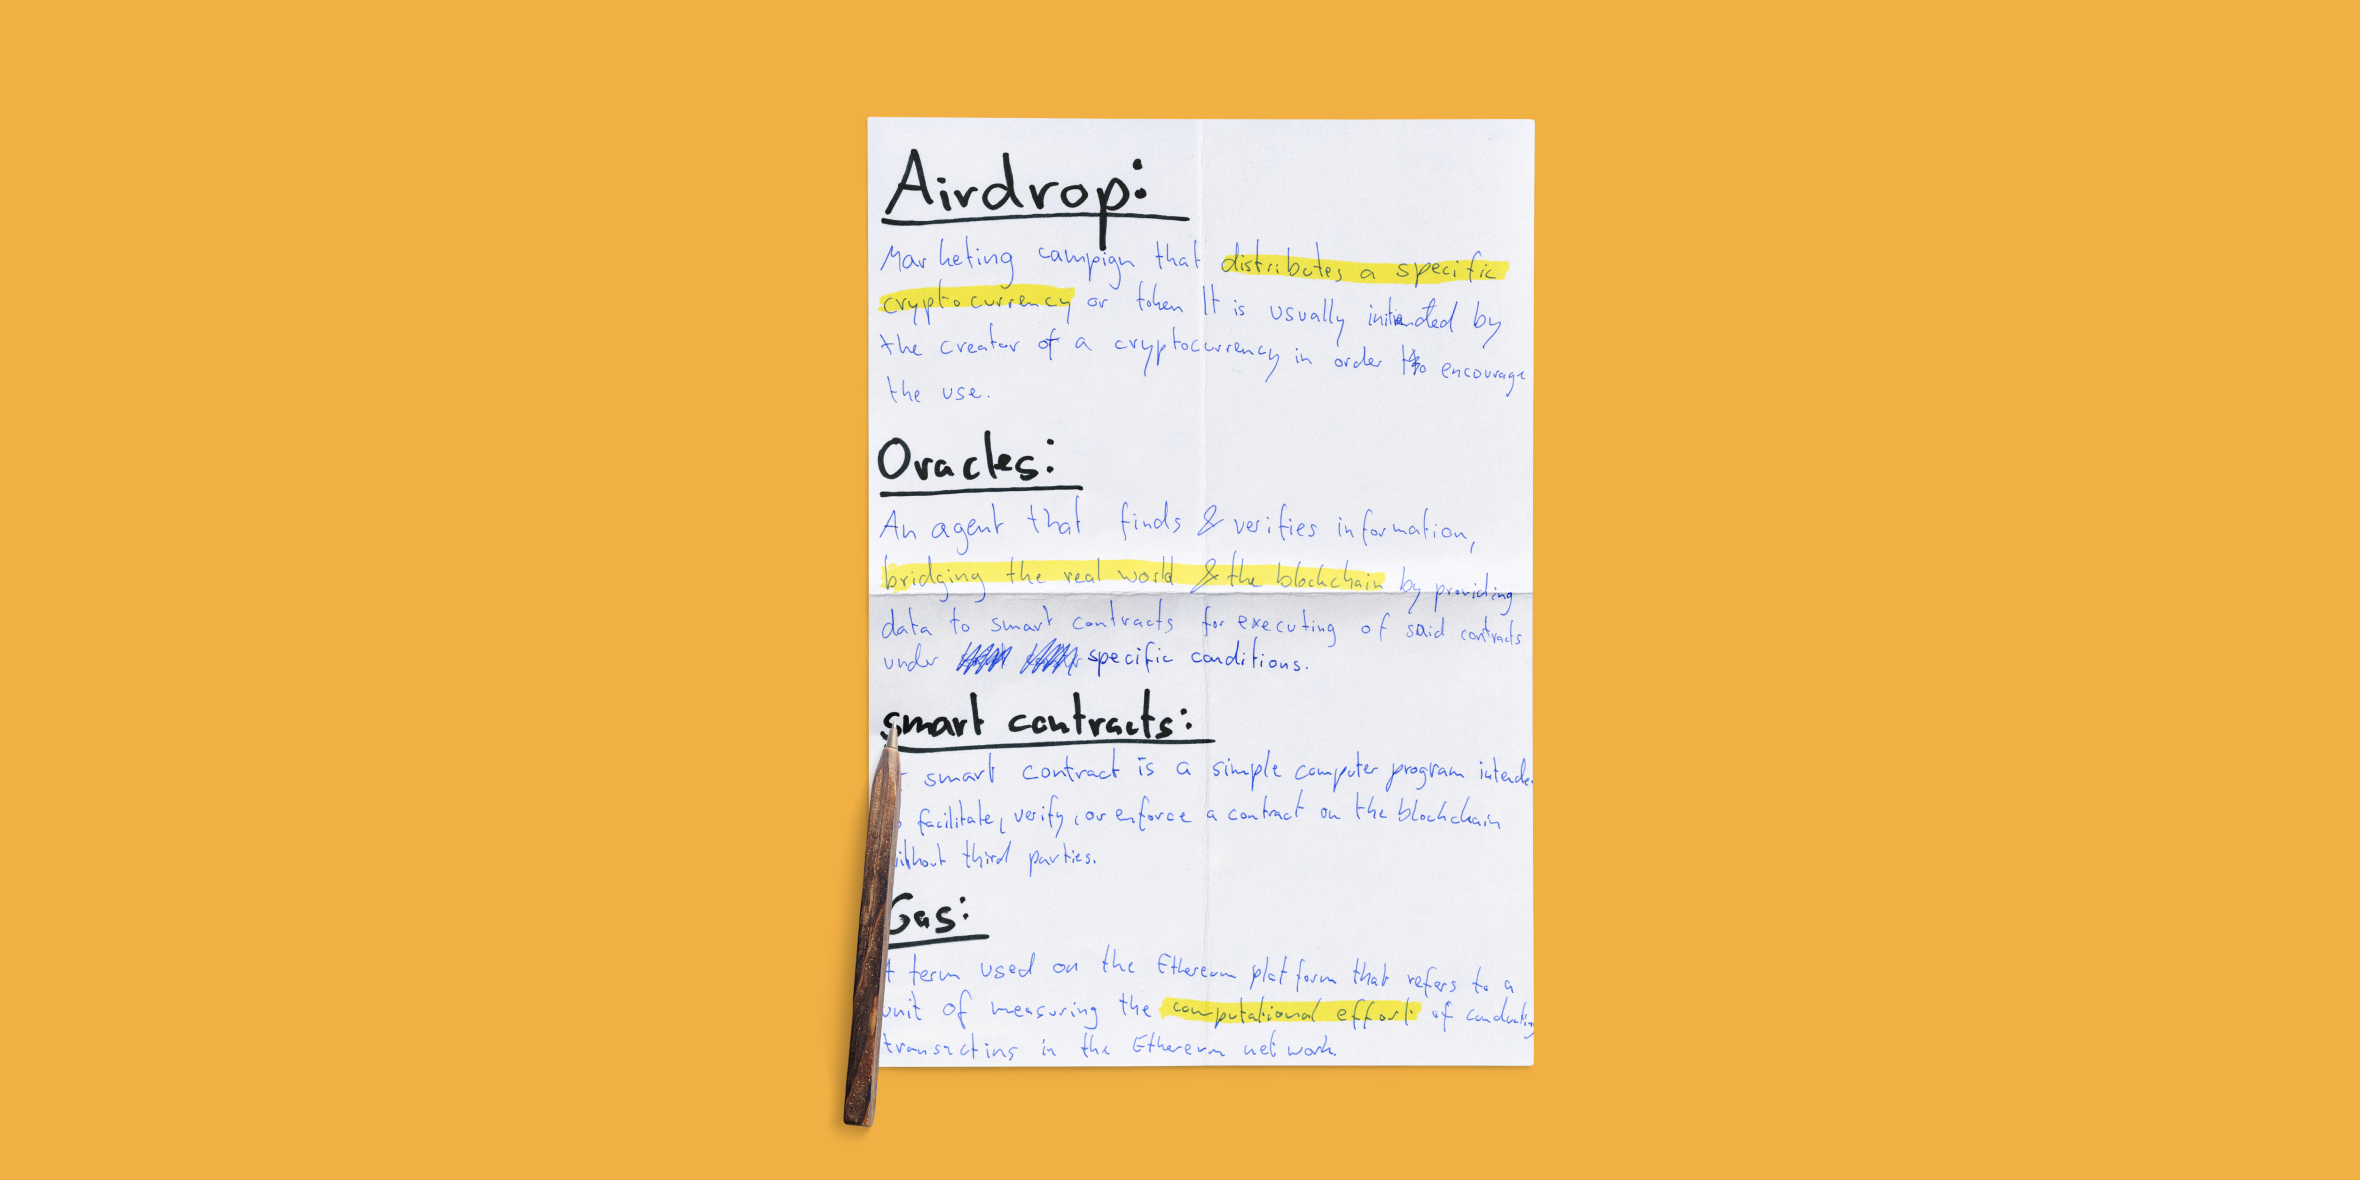 Airdrop:
Marketing campign that distributes a specific
cryptocurrency or token It is usually by
the creator of a cryptocurrency in order to encourage
the use.
Oracles:
An agent that finds & verifies information,
bridging the real world & the blockchain by providing
data to smart contracts for executing of said contracts
under specific conditions.
smart contracts:
smart contract is a simple computer program intende
facilitate, verify, or enforce a contract on the blockchain
without third parties.
Gas:
A term used on the Ethereum platform that refers to a
unit of measuring the computational effort of conducting
transactins in the Ethereum network.